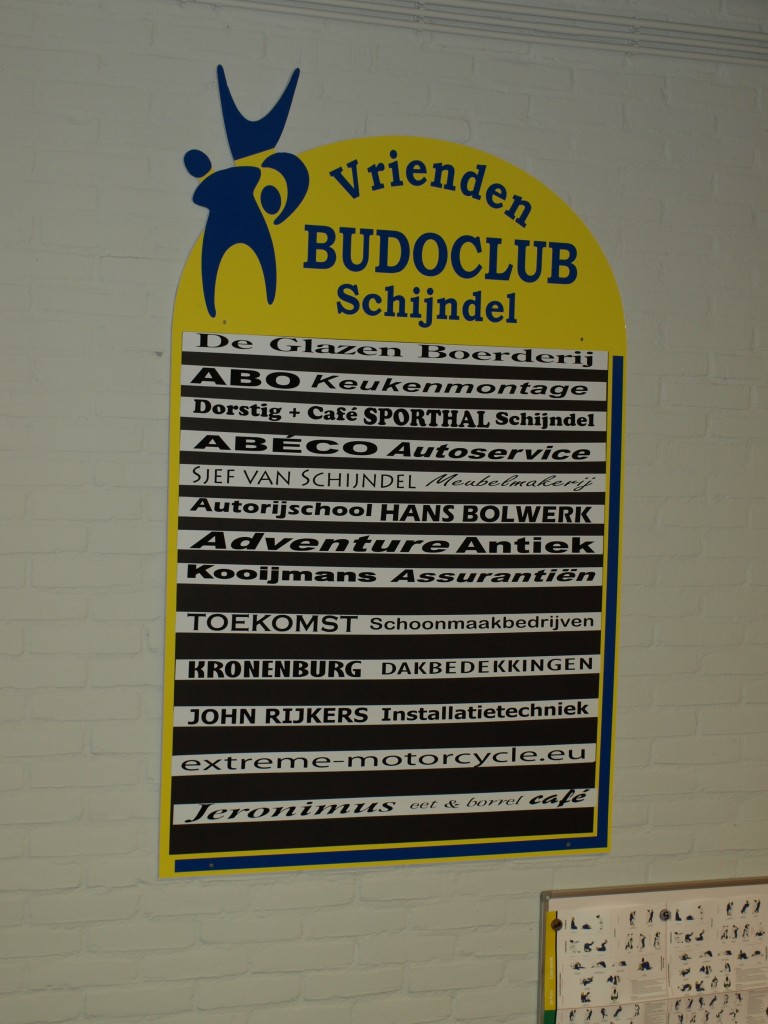 Vrienden
BUDOCLUB
Schijndel
De Glazen Boerderij
ABO Keukenmontage
Dorstig + Café SPORTHAL Schijndel
ABÉCO Autoservice
SJEF VAN SCHIJNDEL Meubelmakerij
Autorijschool HANS BOLWERK
Adventure Antiek
Kooijmans Assurantiën
TOEKOMST Schoonmaakbedrijven
KRONENBURG DAKBEDEKKINGEN
JOHN RIJKERS Installatietechniek
extreme-motorcycle.eu
Jeronimus eet & borrel café